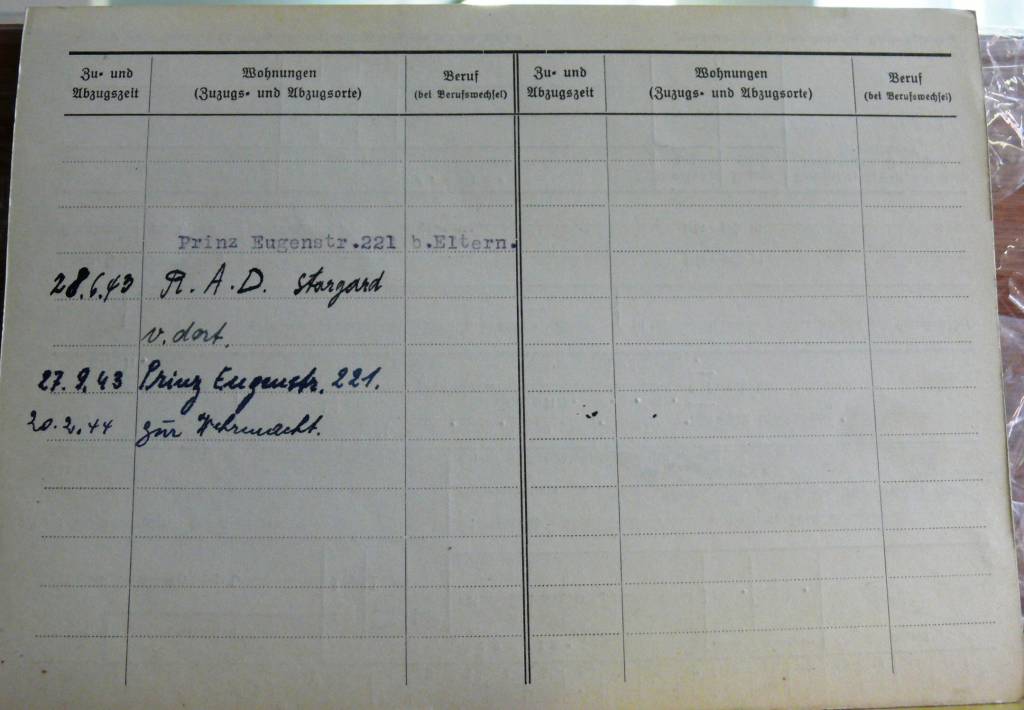 Zu- und Abzugszeit
Wohnungen
(Zuzugs- und Abzugsorte)
Beruf
(bei Berufswechsel)
Zu- und Abzugszeit
Wohnungen
(Zuzugs- und Abzugsorte)
Beruf
(bei Berufswechsel)
Prinz Eugenstr.221 b.Eltern.
28.6.43 R.A.D. Stargard
v. dort.
27.9.43 Prinz Eugenstr. 221.
20.2.44 zur Wehrmacht.